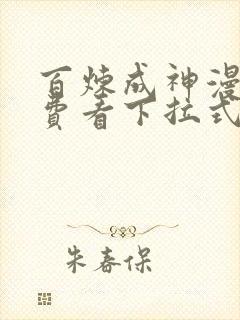 百炼成神漫
费看下拉式
朱春保